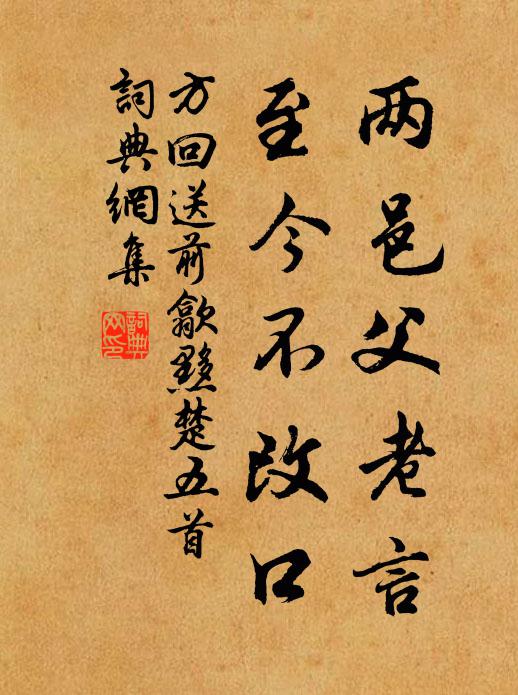 两邑父老言
至今不改口
方回送前歙黟楚五首
詞典網集
詞典网印